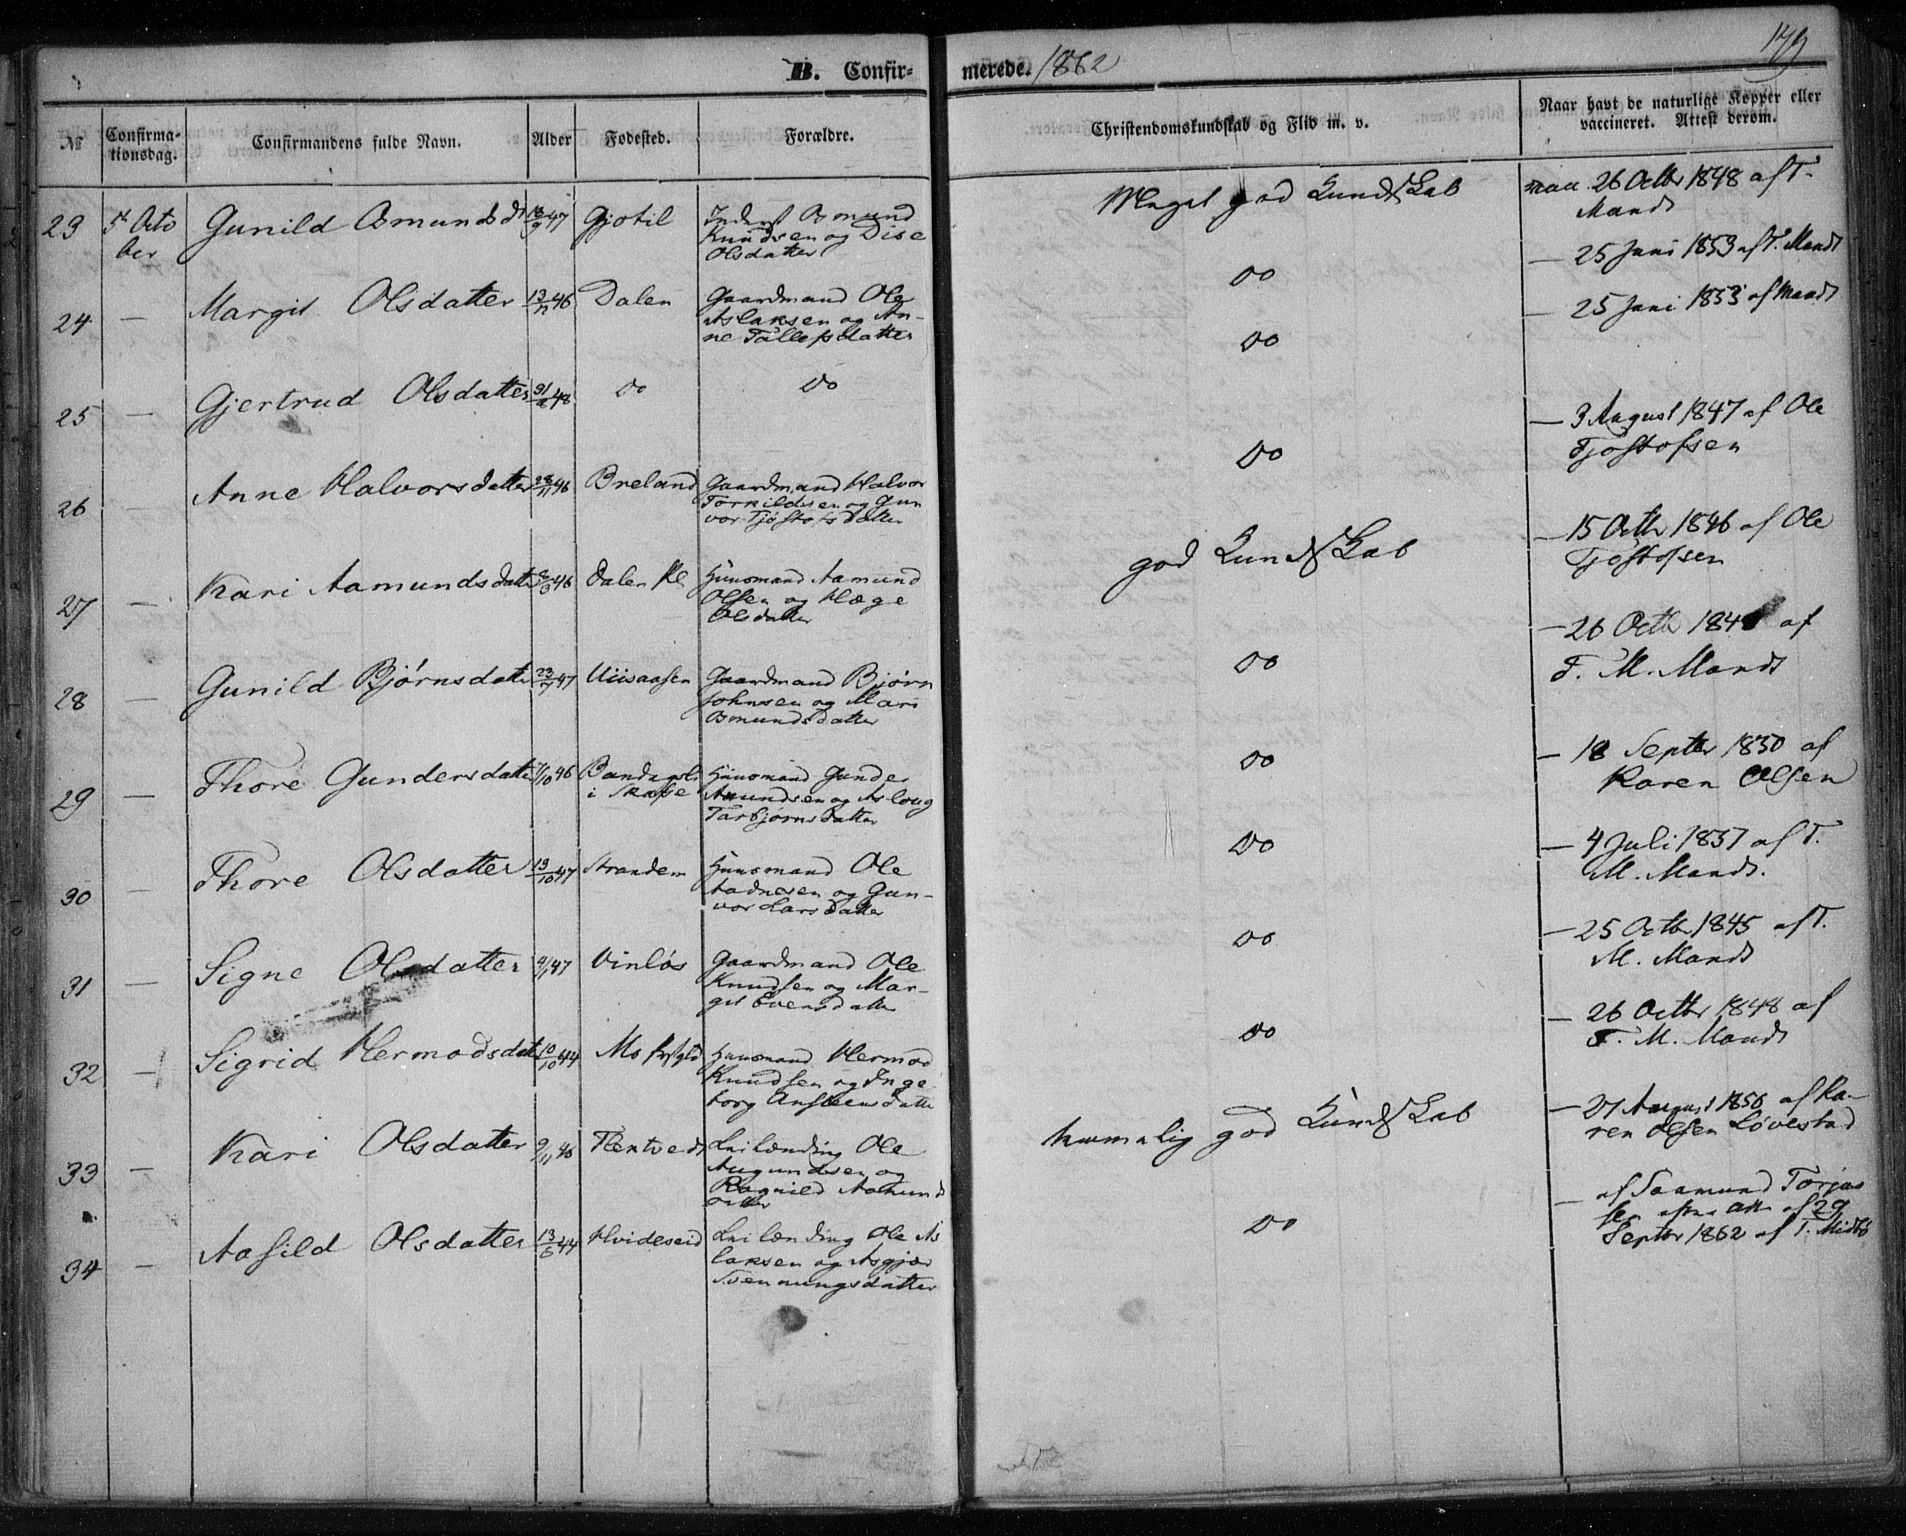 B. Confir-
merede. 1862
179
№
Confirma-
tionsdag.
Confirmandens fulde Navn.
Alder
Fødested.
Forældre.
Christendomskundskab og Flid m. v.
Naar havt de naturlige Kopper eller
vaccineret. Attest derom.
23 5te Octo Gunild Osmundsdt 47 Gjotil Inderst Osmund
ber Knudsen og Dise
Olsdatter
Meget god Kundskab
26 Octbr 1848 af T.
Mandt
24 — Margit Olsdatter 46 Dalen Gaardmand Ole
Aslaksen og An-
ne Tallefsdatter
Do
— 25 Juni 1853 af T. Mandt
25 — Gjertrud Olsdatter 48 Do Do
Do
— 25 Juni 1853 af Mandt
26 — Anne Halvorsdatter 28/11 46 Breland Gaardmand Halvor
Torkildsen og Gun
vor Tjøstofsdatter
Do
— 3 August 1847 af Ole
Tjøstofsen
27 — Kari Aamundsdatter 46 Dalen Pl Huusmand Aamund
Olsen og Hæge
Olsdatter
god Kundskab
— 15 Octbr 1846 af Ole
Tjøstofsen
28 — Gunild Bjørnsdatter 47 Gaardmand Bjørn
Johnsen og Mari
Osmundsdatter
Do
— 26 Octbr 1848 af
T. M. Mandt
29 — Thore Gundersdatter 46 Bandagsli Huusmand Gunder
i Skafse Amundsen og Aslaug
Tarbjørnsdatter
Do
— 18 Septbr 1850 af
Karen Olsen
30 — Thore Olsdatter 13/10 47 Stranden Huusmand Ole
Aadnesen og Gun-
vor Larsdatter
Do
— 4 Juli 1857 af T.
M. Mandt.
31 — Signe Olsdatter 47 Vinløs Gaardmand Ole
Knudsen og Mar-
git Evensdatter
Do
— 25 Octbr 1845 af T.
M. Mandt
32 — Sigrid Hermodsdatt 10/10 44 Mo Huusmand Hermod
Knudsen og Inge
borg Ansteensdatter
Do
— 26 Octbr 1848 af
T. M. Mandt
33 — Kari Olsdatter 9/11 46 Flentvedt Leilænding Ole
Augundsen og
Ragnild Aamunds
datter
temmelig god Kundskab
— 27 August 1856 af Ka-
ren Olsen Løvestad
34 — Aasild Olsdatter 44 Hvideseid Leilænding Ole As
laksen og Asgjær
Svenningsdatter
Do
— af Saamund Torjus
sen af 29
Septbr 1862 af T. Midbø